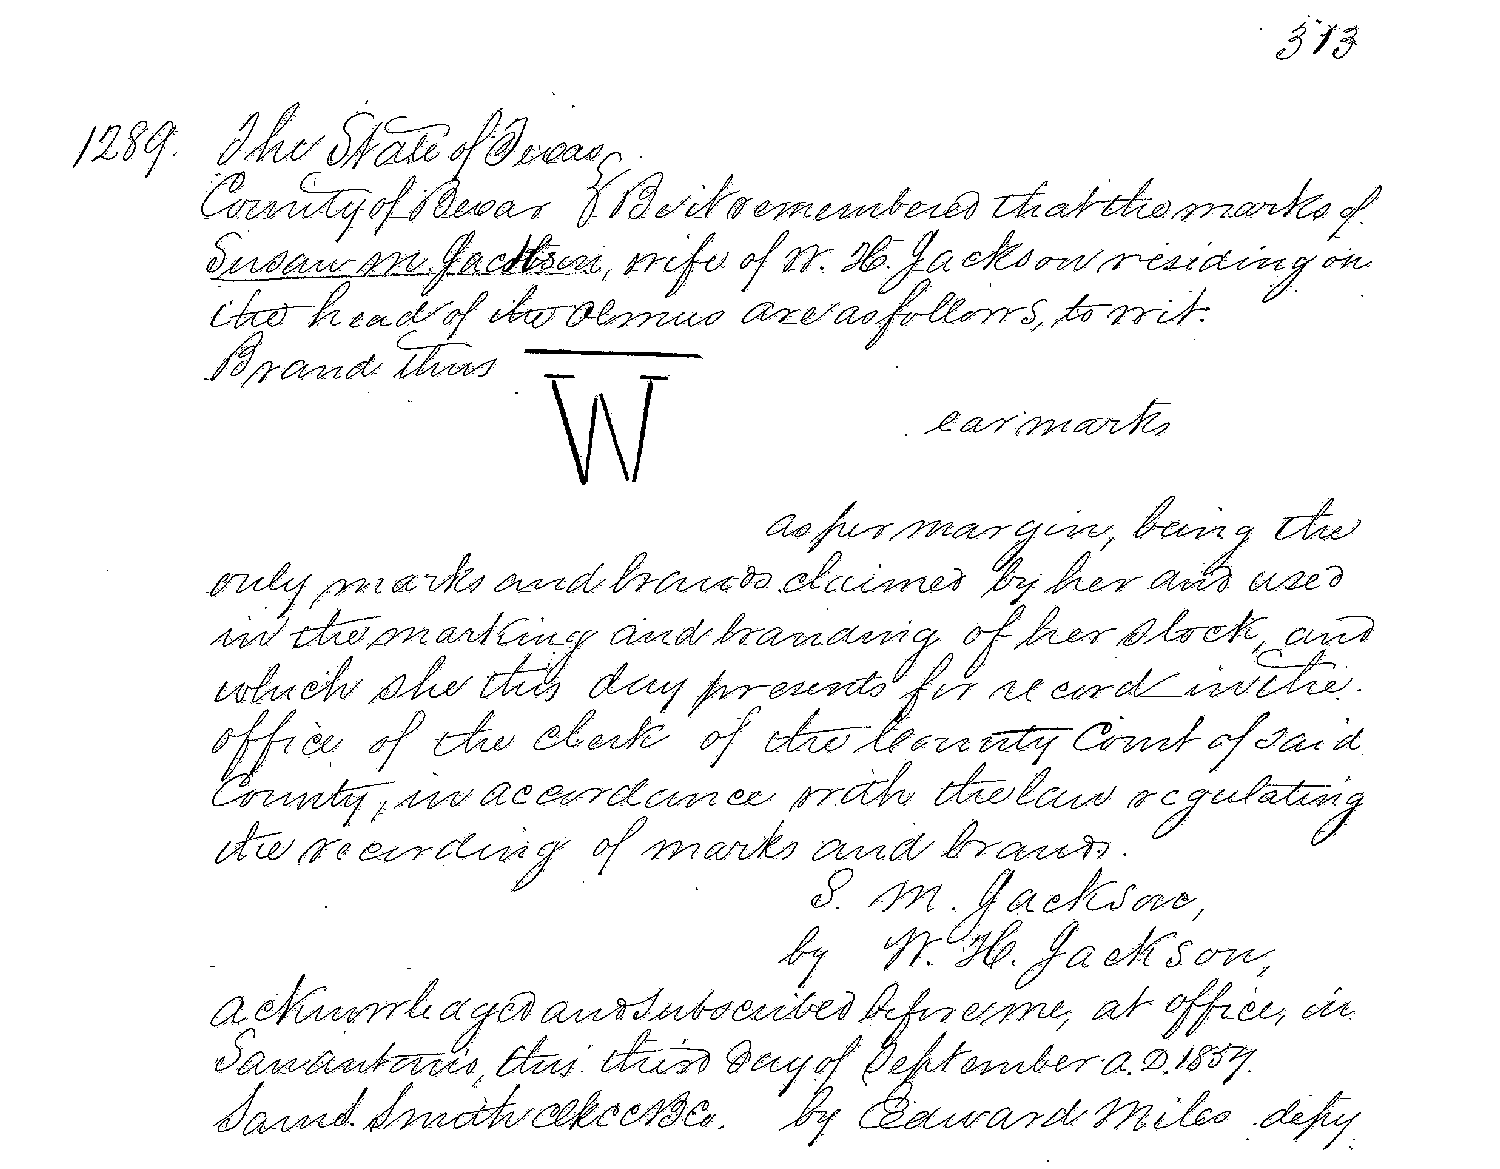 373
1289. The State of Texas
County of Bexar } Be it remembered that the marks of
Susan M. Jackson, wife of W. H. Jackson residing on
the head of the Olmus are as follows, to wit.
Brand thus W
ear marks
as per margin, being the
only marks and brands claimed by her and used
in the marking and branding of her stock, and
which she this day presents for record in the
office of the clerk of the County Court of said
County, in accordance with the law regulating
the recording of marks and brands.
S. M. Jackson,
by W. H. Jackson,
acknowledged and subscribed before me, at office, in
San antonio, this third day of September A.D. 1857.
Saml. Smith Clk C C B Co. by Edward Miles depy